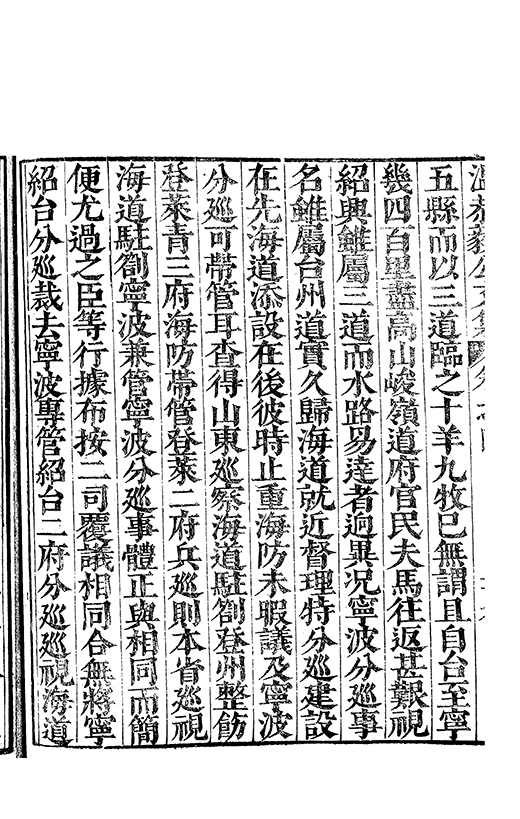 溫恭毅公文集
五縣而以三道臨之十羊九牧已無謂且自台至寧
幾四百里盡高山峻嶺道府官民夫馬往返甚艱視
紹興雖屬三道而水路易達者迥異况寧波分廵事
名雖屬台州道實久歸海道就近督理特分廵建設
在先海道添設在後彼時止重海防未暇議及寧波
分廵可帶管耳查得山東廵察海道駐劄登州整飭
登萊青三府海防帶管登萊二府兵廵則本省廵視
海道駐劄寧波兼管寧波分廵事體正與相同而簡
便尤過之臣等行據布按二司覆議相同合無將寧
紹台分廵裁去寧波專管紹台二府分廵廵視海道